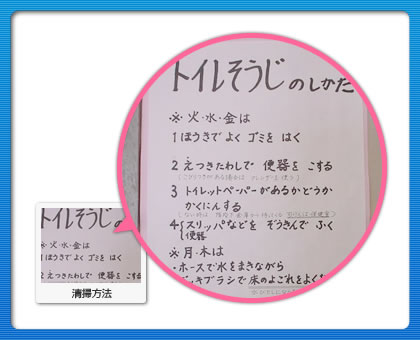 トイレそうじのしかた
※火・水・金は
1 ほうきで よく ゴミを はく
2 えつきたわしで 便器を こする
3 トイレットペーパーがあるかどうか
かくにんする
4 スリッパなどを ぞうきんで ふく
便器
※月・木は
・ホースで水をまきながら
キブラシで床のよごれをよく
トイレそうじの
※火・水・金は
1 ほうきで よく ゴミを はく
2 えつきたわしで 便器を こする
清掃方法